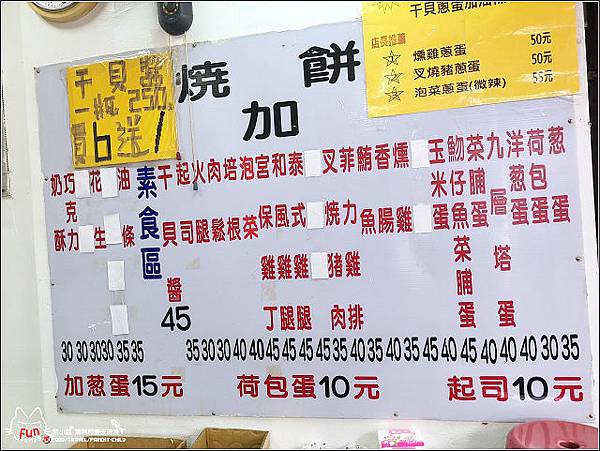 干貝醬
一瓶250
買6送1
店長推薦
燻雞蔥蛋 50元
叉燒豬蔥蛋 50元
泡菜蔥蛋(微辣) 55元
燒餅
加
奶酥
巧克力
花生
油條
素食區
干貝醬45
起司
火腿
肉鬆
培根
泡菜
宮保雞丁
和風雞腿
泰式雞腿
叉燒豬肉
菲力雞排
鮪魚
香腸
燻雞
玉米蛋
魩仔魚菜脯蛋
菜脯蛋
九層塔蛋
洋葱蛋
荷包蛋
葱蛋
30 30 30 30 35 35
加葱蛋15元 荷包蛋10元 起司10元
FUN
FOOD/TRAVEL/PARENT-CHILD